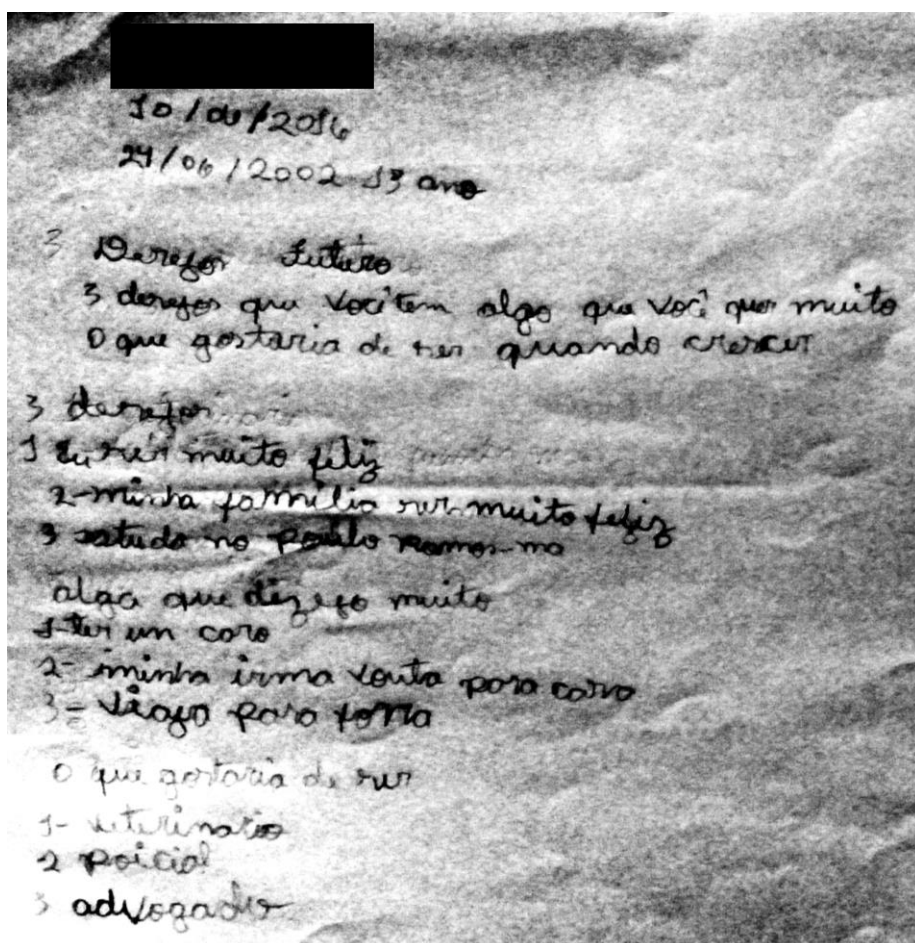 10/06/2016
24/06/2002 13 ano
3 Desejos Futuro
3 desejos que você tem algo que você quer muito
O que gostaria de ser quando crescer
3 desejos
1 Eu ser muito feliz
2-minha familia ser muito feliz
3 estuda no Paulo Ramos-ma
algo que dizejo muito
1-ter un caro
2- minha irma vouta para casa
3- viaja para fora
O que gostaria de ser
1- veterinario
2 poicial
3 advogado